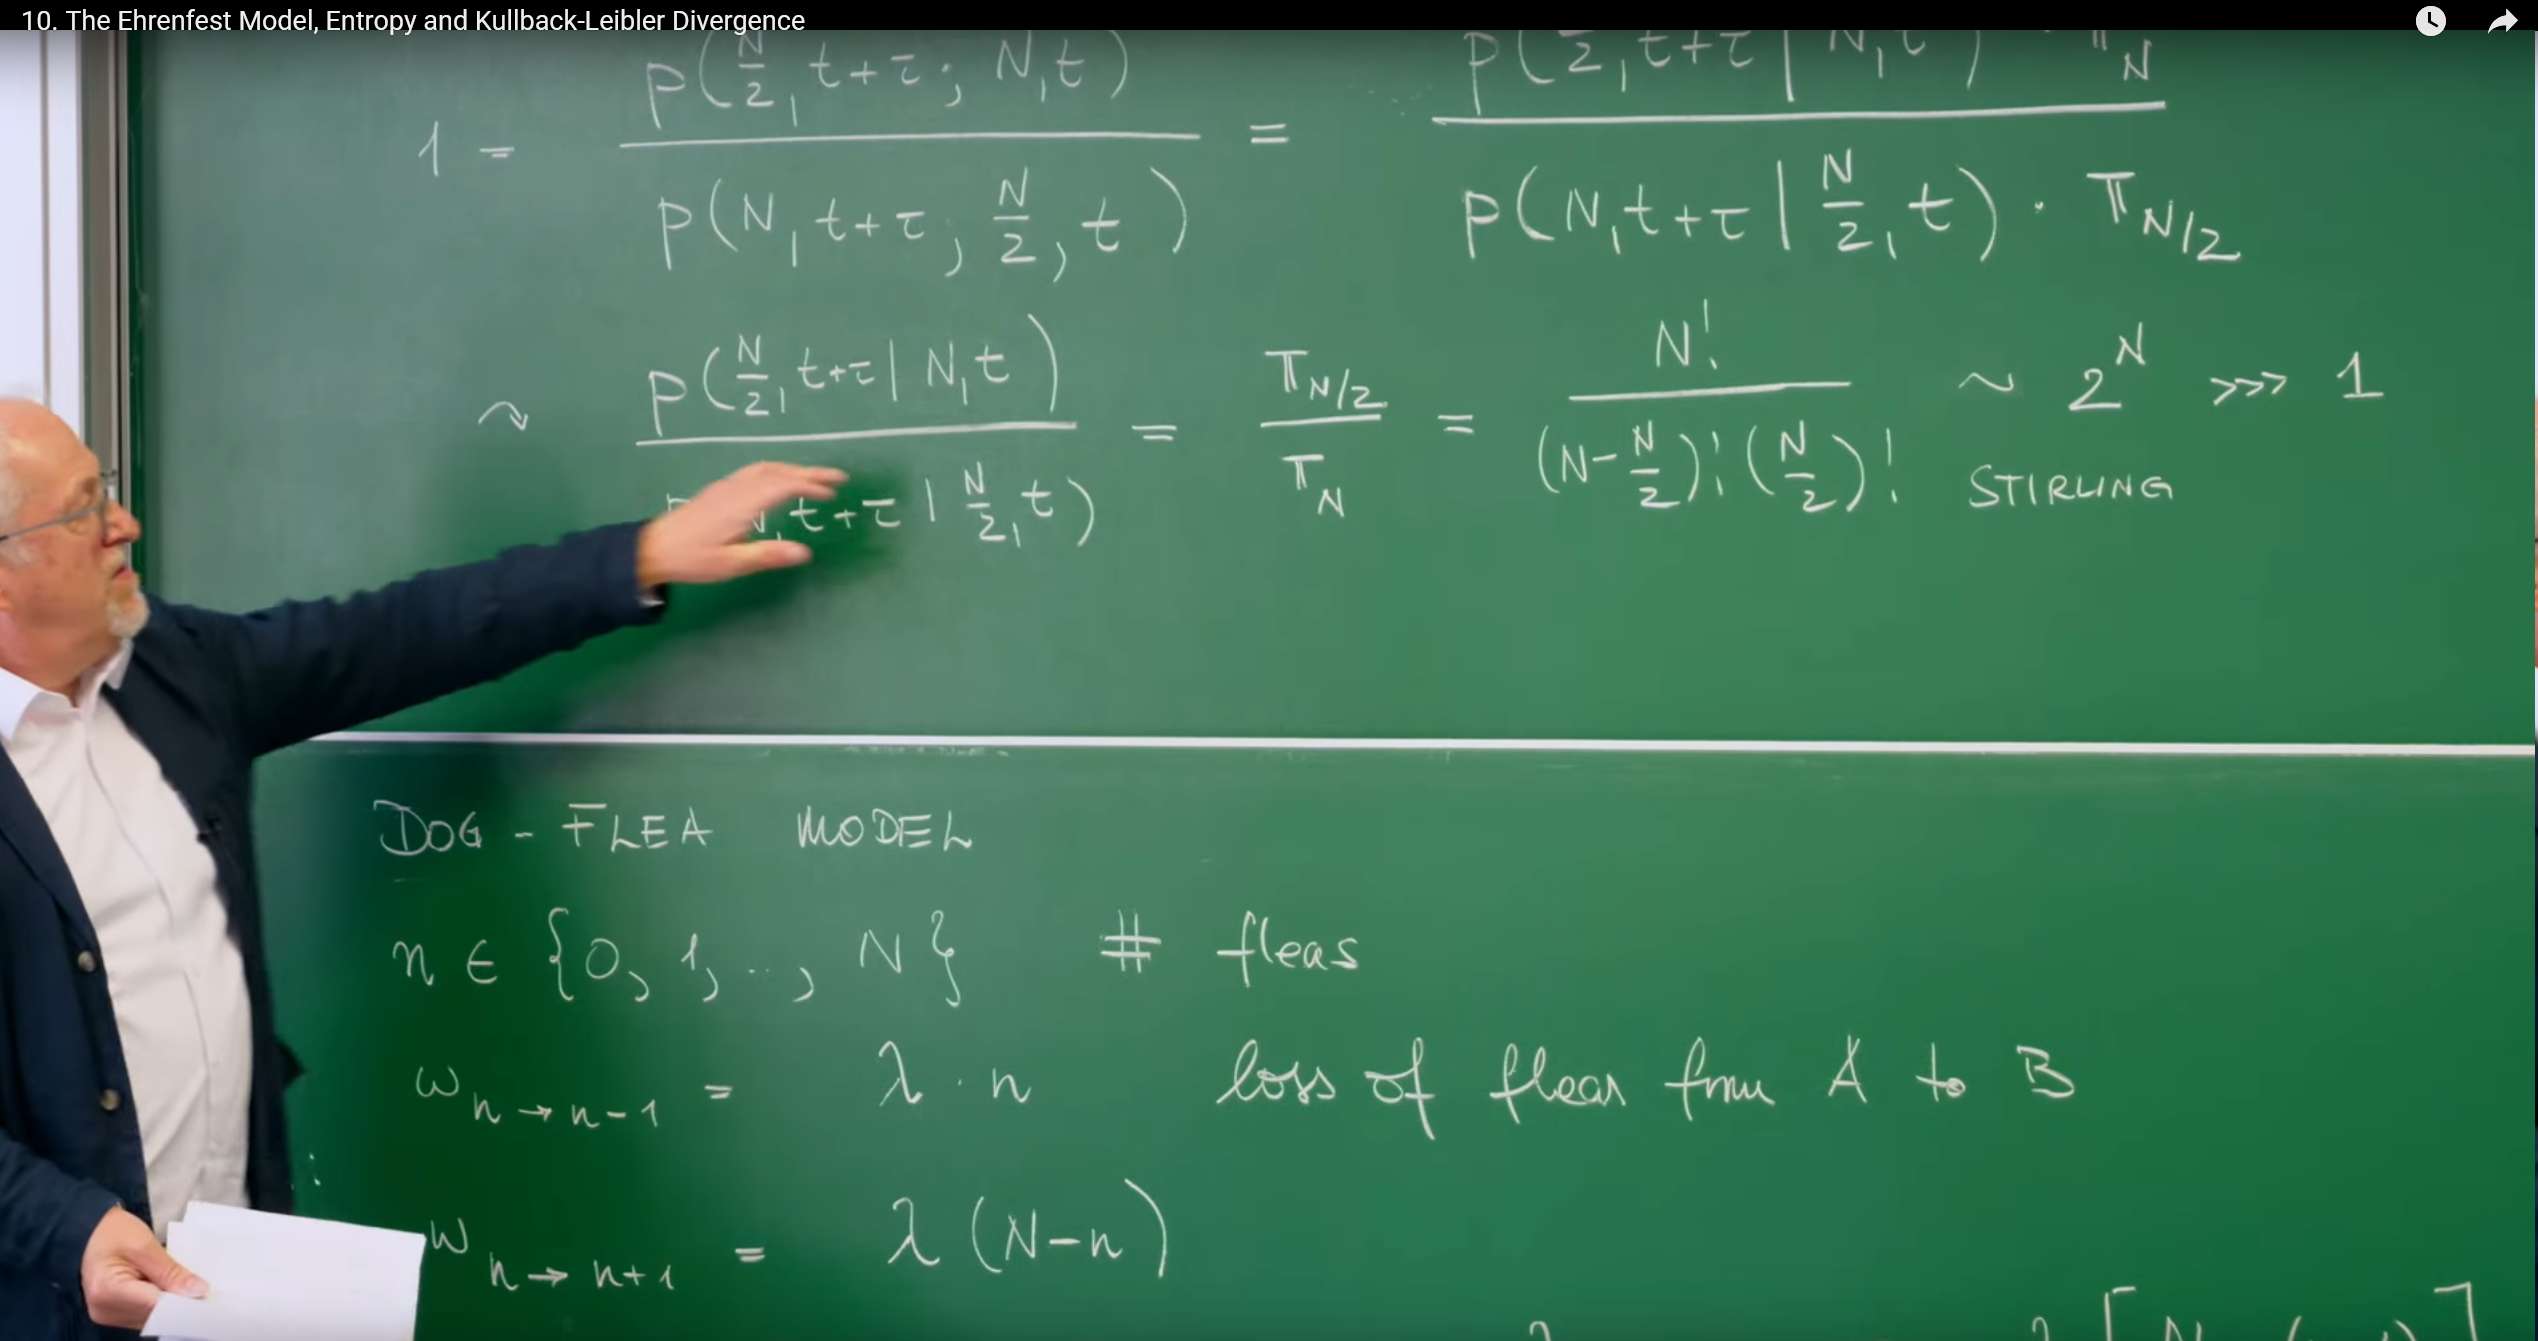 10. The Ehrenfest Model, Entropy and Kullback-Leibler Divergence
1 = p(N/2, t+τ; N, t) / p(N, t+τ; N/2, t) = p(N/2, t+τ | N, t) · π_N / p(N, t+τ | N/2, t) · π_{N/2}
↷ p(N/2, t+τ | N, t) / p(N, t+τ | N/2, t) = π_{N/2} / π_N = N! / (N-N/2)! (N/2)! ~ 2^N >>> 1
STIRLING
DOG - FLEA MODEL
n ∈ {0, 1, .., N} # fleas
w_{n→n-1} = λ · n loss of fleas from A to B
w_{n→n+1} = λ (N-n)